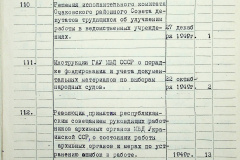 110. Решения исполнительного комитета
Основского районного Совета де-
путатов трудящихся об улучшении
работы в ведомственных учрежде-
ниях.
27 декаб
ря 1949г. 1
111. Инструкция ГАУ МВД СССР о поряд-
ке фондирования и учета докумен-
тальных материалов по выборам
народных судов.
22 октяб
ря 1949г. 2
112. Резолюция принятая республикан-
ским совещанием руководящих работ-
ников архивных органов МВД Укра-
инской ССР, о состоянии работы
архивных органов и мерах по уст-
ранению ошибок в работе.
1949г. 13